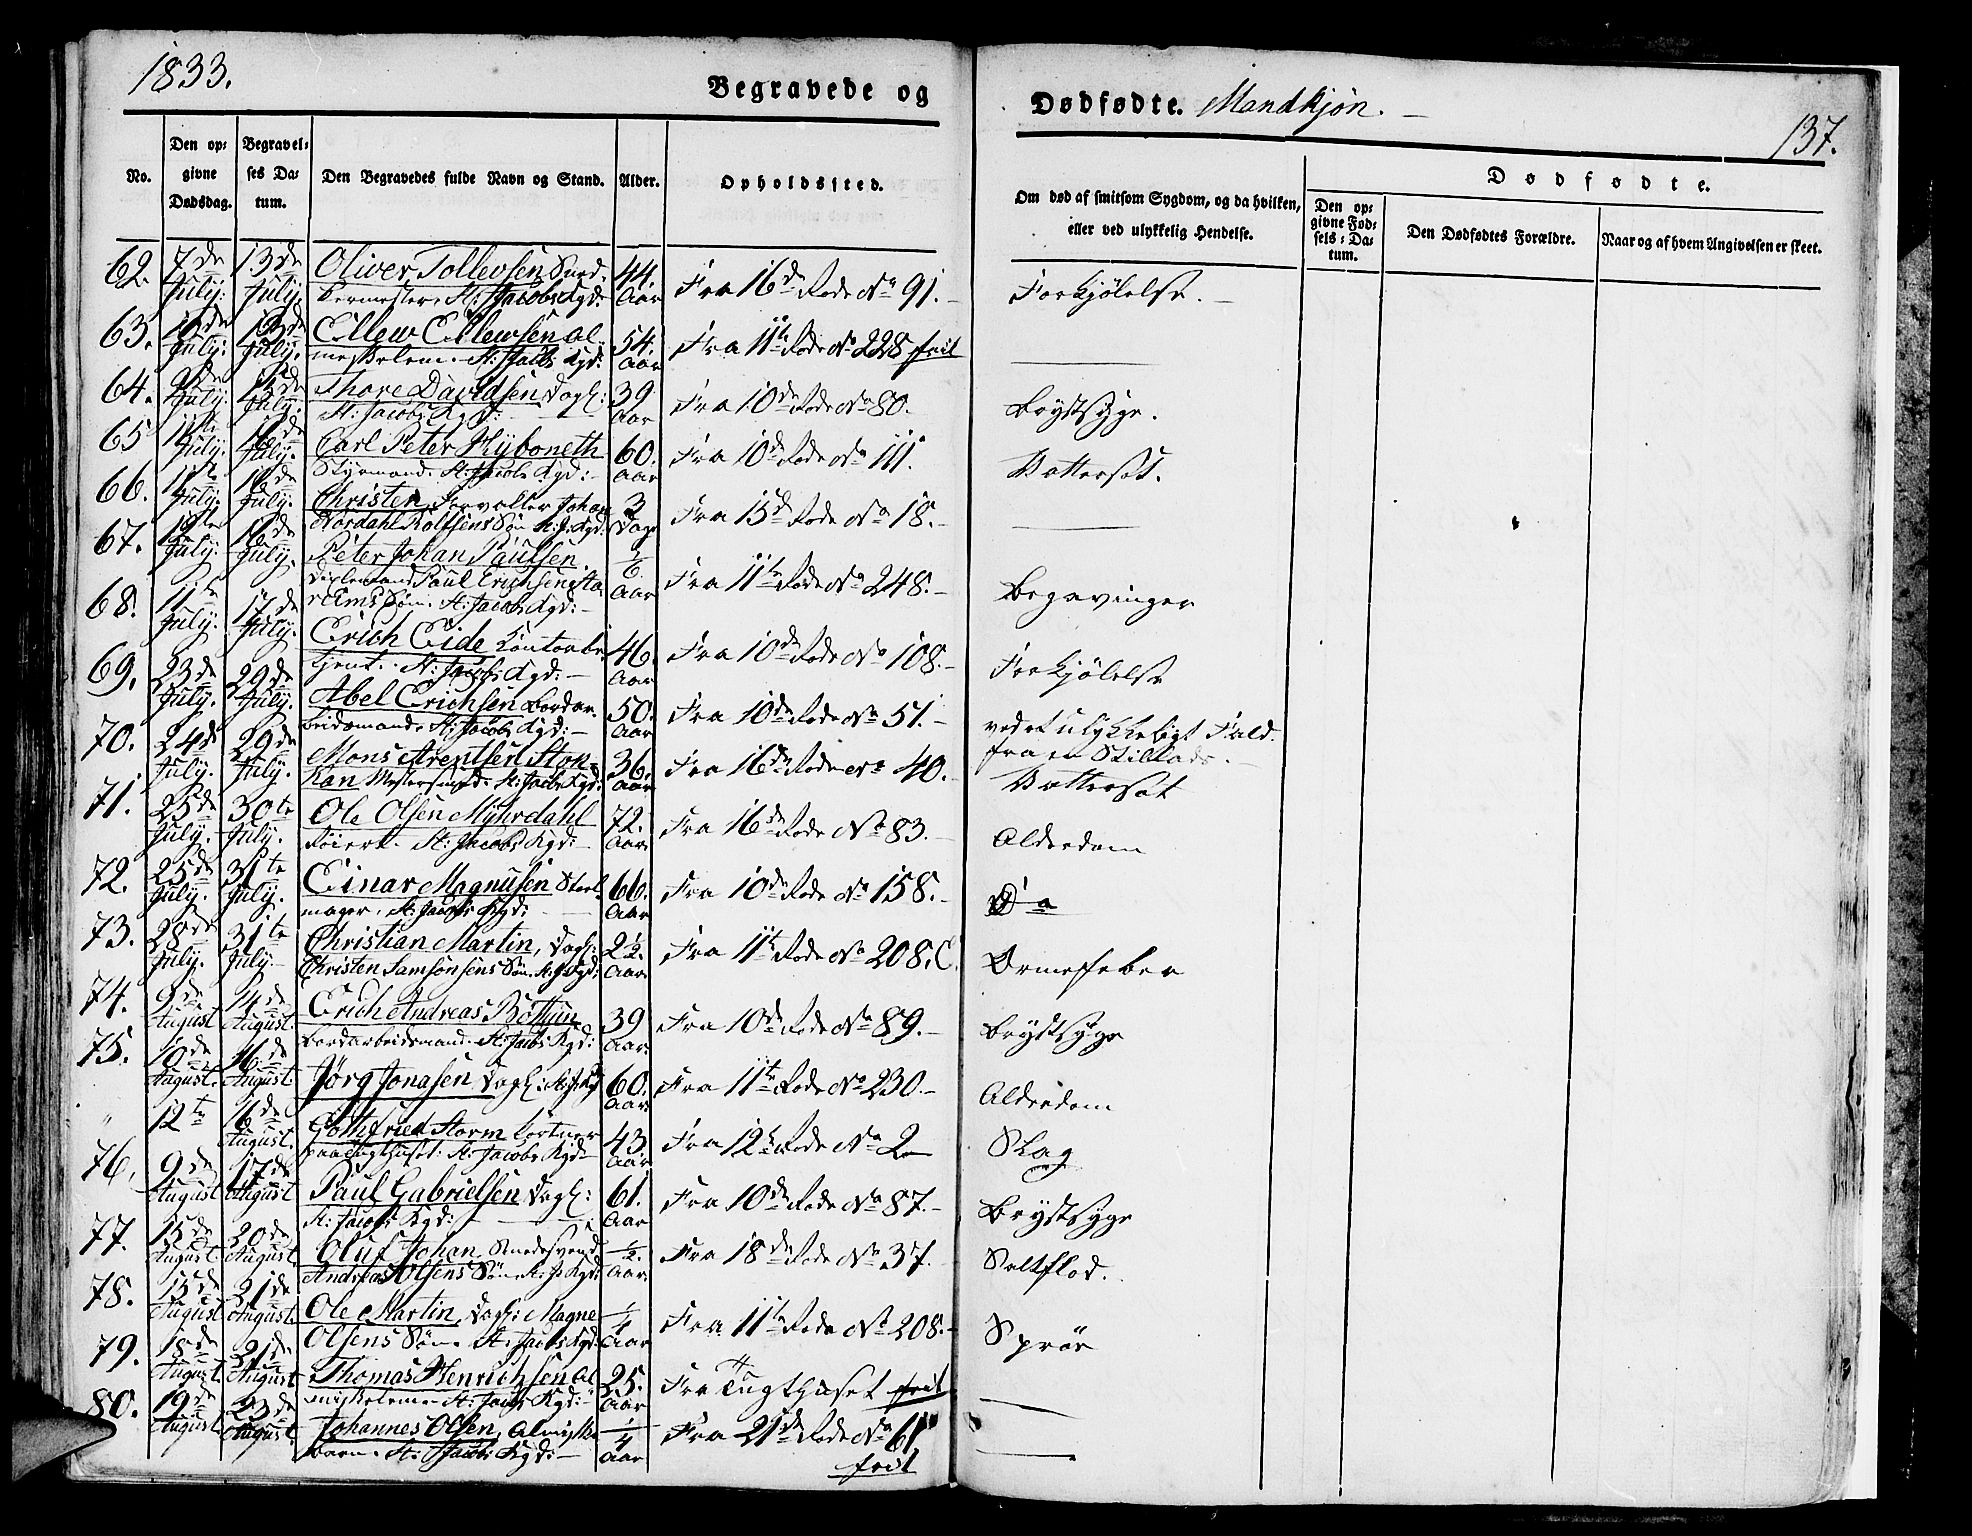 1833.
Begravede og
Dødfødte. Mandkjøn.
137.
No.
Den opgivne Dødsdag.
Begravelses Datum.
Den Begravedes fulde Navn og Stand.
Alder.
Opholdssted.
Om død af smitsom Sygdom, og da hvilken, eller ved ulykkelig Hendelse.
Dødfødte.
Den opgivne Fødsels-Datum.
Den Dødfødtes Forældre.
Naar og af hvem Angivelsen er skeet.
62. 7de July. 13de July. Oliver Tollevsen 44. Aar Fra 16de Rode No 91. Forkjølelse.
St: Jacobs Kgd:
63. July. 13de July. Ellew Ellewsen al- 54. Aar Fra 11te Rode No 228 frit
St: Jacobs Kgd:
64. July. July. Thore Davidsen Dagl: 39 Aar Fra 10de Rode No 80. Brystsyge.
St: Jacobs Kgd:
65 11te July. 16de July. Carl Peter Hyboneth 60. Aar Fra 10de Rode No 111. Vattersot.
Styrmand. St: Jacobs Kgd:
66. 11te July. 16de July. Christen, Forvalter Johan 3 Dage Fra 15de Rode No 18.
Nordahl Rolfsens Søn St: J: Kgd:
67. 12te July. 16de July. Peter Johan Paulsen 1/6 Aar Fra 11te Rode No 248. Begavinger
Paul Erichsen
Søn. St: Jacobs Kgd:
68. 11te July. 17de July. Erich Eide Contorbe- 46. Aar Fra 10de Rode No 108. Forkjølelse
tjent. St: Jacobs Kgd:
69. 23de July. 29de July. Abel Erichsen Bordar- 50. Aar Fra 10de Rode No 51. ved et ulykkeligt Fald
beidsmand. St: Jacobs Kgd: fra en Stillads.
70. 24de July. 29de July. Mons Arentsen Stok- 36. Aar Fra 16de Rode No 40. Vattersot
St: Jacobs Kgd:
71. 25de July. 30te July. Ole Olsen Myhrdahl 72. Aar Fra 16de Rode No 83. Alderdom
St: Jacobs Kgd:
72. 25de July. 31te July. Einar Magnusen Stol- 66. Aar Fra 10de Rode No 158. Do
mager, St: Jacobs Kgd:
73. 28de July. 31te July. Christian Martin, Dagl: 2 1/2. Aar Fra 11te Rode No 208. C. Ormefeber
Christen Samsonsens Søn. St: J: Kgd:
74. 9de August 14de August. Erich Andreas Bottun 39 Aar. Fra 10de Rode No 89. Brystsyge
Bordarbeidsmand. St: Jacobs Kgd:
75. 10de August. 16de August. Jörg Jonasen Dagl: St: J: Kgd 60. Aar Fra 11te Rode No 230. Alderdom
" 12te 16de August. Gothfried Storm 43. Aar Fra 12te Rode No 2 Slag
paa Tugthuset. St: Jacobs Kgd:
76. 9de August 17de August Paul Gabrielsen Dagl: 61. Aar Fra 10de Rode No 87. Brystsyge
St: Jacobs Kgd:
77. 15de August. 20de August. Oluf Johan, Smedesvend 1/2. Aar. Fra 18de Rode No 37. Saltflod.
Andreas Olsens Søn St: J: Kgd:
78. 15de August 21de August. Ole Martin, Dagl: Magne 1/4 Aar Fra 11te Rode No 208. Sprør
Olsens Søn. St: Jacobs Kgd:
79. 18de August. 21de August. Thomas Henrichsen al- 25. Aar Fra Tugthuset frit
St: Jacobs Kgd:
80. 19de August. 23de August. Johannes Olsen, Almisse- 1/4 Aar Fra 21de Rode No 61
barn. St: Jacobs Kgd: frit